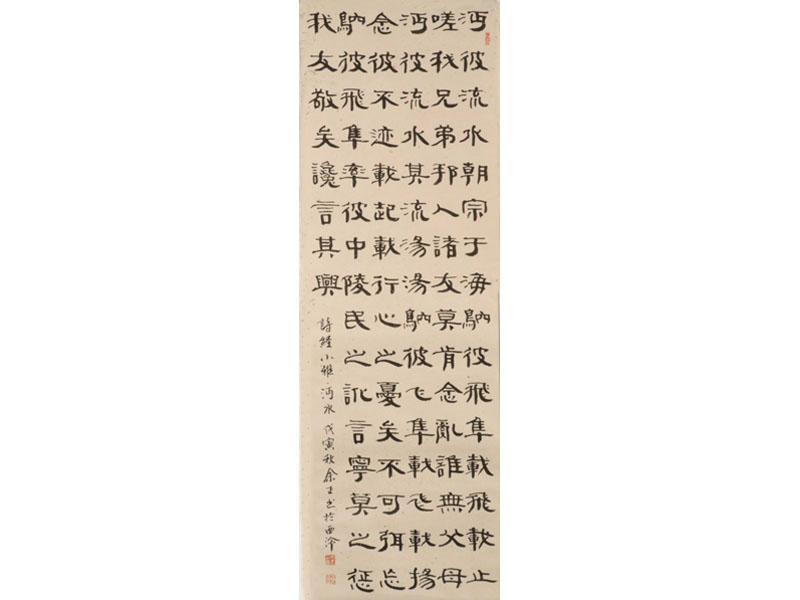 沔彼流水朝宗于海鴥彼飛隼載飛載止
嗟我兄弟邦人諸友莫肯念亂誰無父母
沔彼流水其流湯湯鴥彼飞隼載飞載揚
念彼不迹載起載行心之憂矣不可弭忘
鴥彼飛隼率彼中陵民之訛言寧莫之懲
我友敬矣讒言其興
詩經小雅·沔水 戊寅秋余正书於西泠